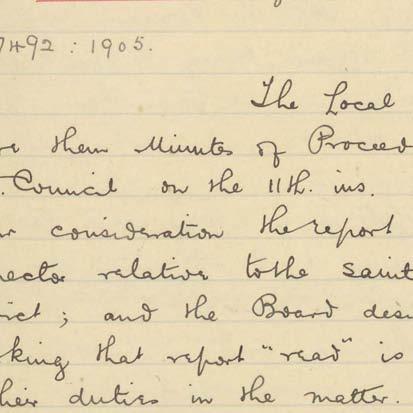 7492 : 1905.
The Local
re them Minutes of Proceed
. Council on the 11th. ins.
r consideration the report
ector relative to the Sanit
rict ; and the Board desi
king that report "read" is
heir duties in the matter.